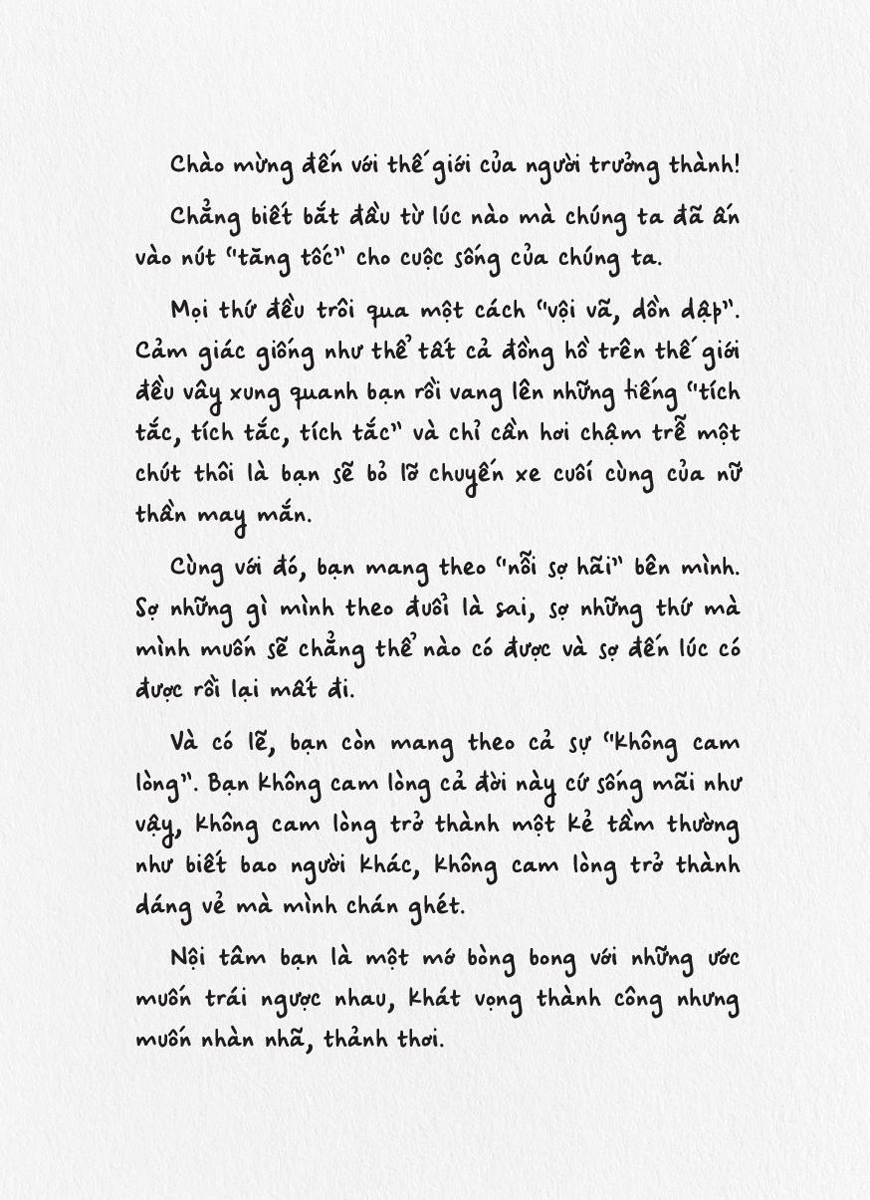 Chào mừng đến với thế giới của người trưởng thành!
Chẳng biết bắt đầu từ lúc nào mà chúng ta đã ấn
vào nút "tăng tốc" cho cuộc sống của chúng ta.
Mọi thứ đều trôi qua một cách "vội vã, dồn dập".
Cảm giác giống như thể tất cả đồng hồ trên thế giới
đều vây xung quanh bạn rồi vang lên những tiếng "tích
tắc, tích tắc, tích tắc" và chỉ cần hơi chậm trễ một
chút thôi là bạn sẽ bỏ lỡ chuyến xe cuối cùng của nữ
thần may mắn.
Cùng với đó, bạn mang theo "nỗi sợ hãi" bên mình.
Sợ những gì mình theo đuổi là sai, sợ những thứ mà
mình muốn sẽ chẳng thể nào có được và sợ đến lúc có
được rồi lại mất đi.
Và có lẽ, bạn còn mang theo cả sự "không cam
lòng". Bạn không cam lòng cả đời này cứ sống mãi như
vậy, không cam lòng trở thành một kẻ tầm thường
như biết bao người khác, không cam lòng trở thành
dáng vẻ mà mình chán ghét.
Nội tâm bạn là một mớ bòng bong với những ước
muốn trái ngược nhau, khát vọng thành công nhưng
muốn nhàn nhã, thảnh thơi.